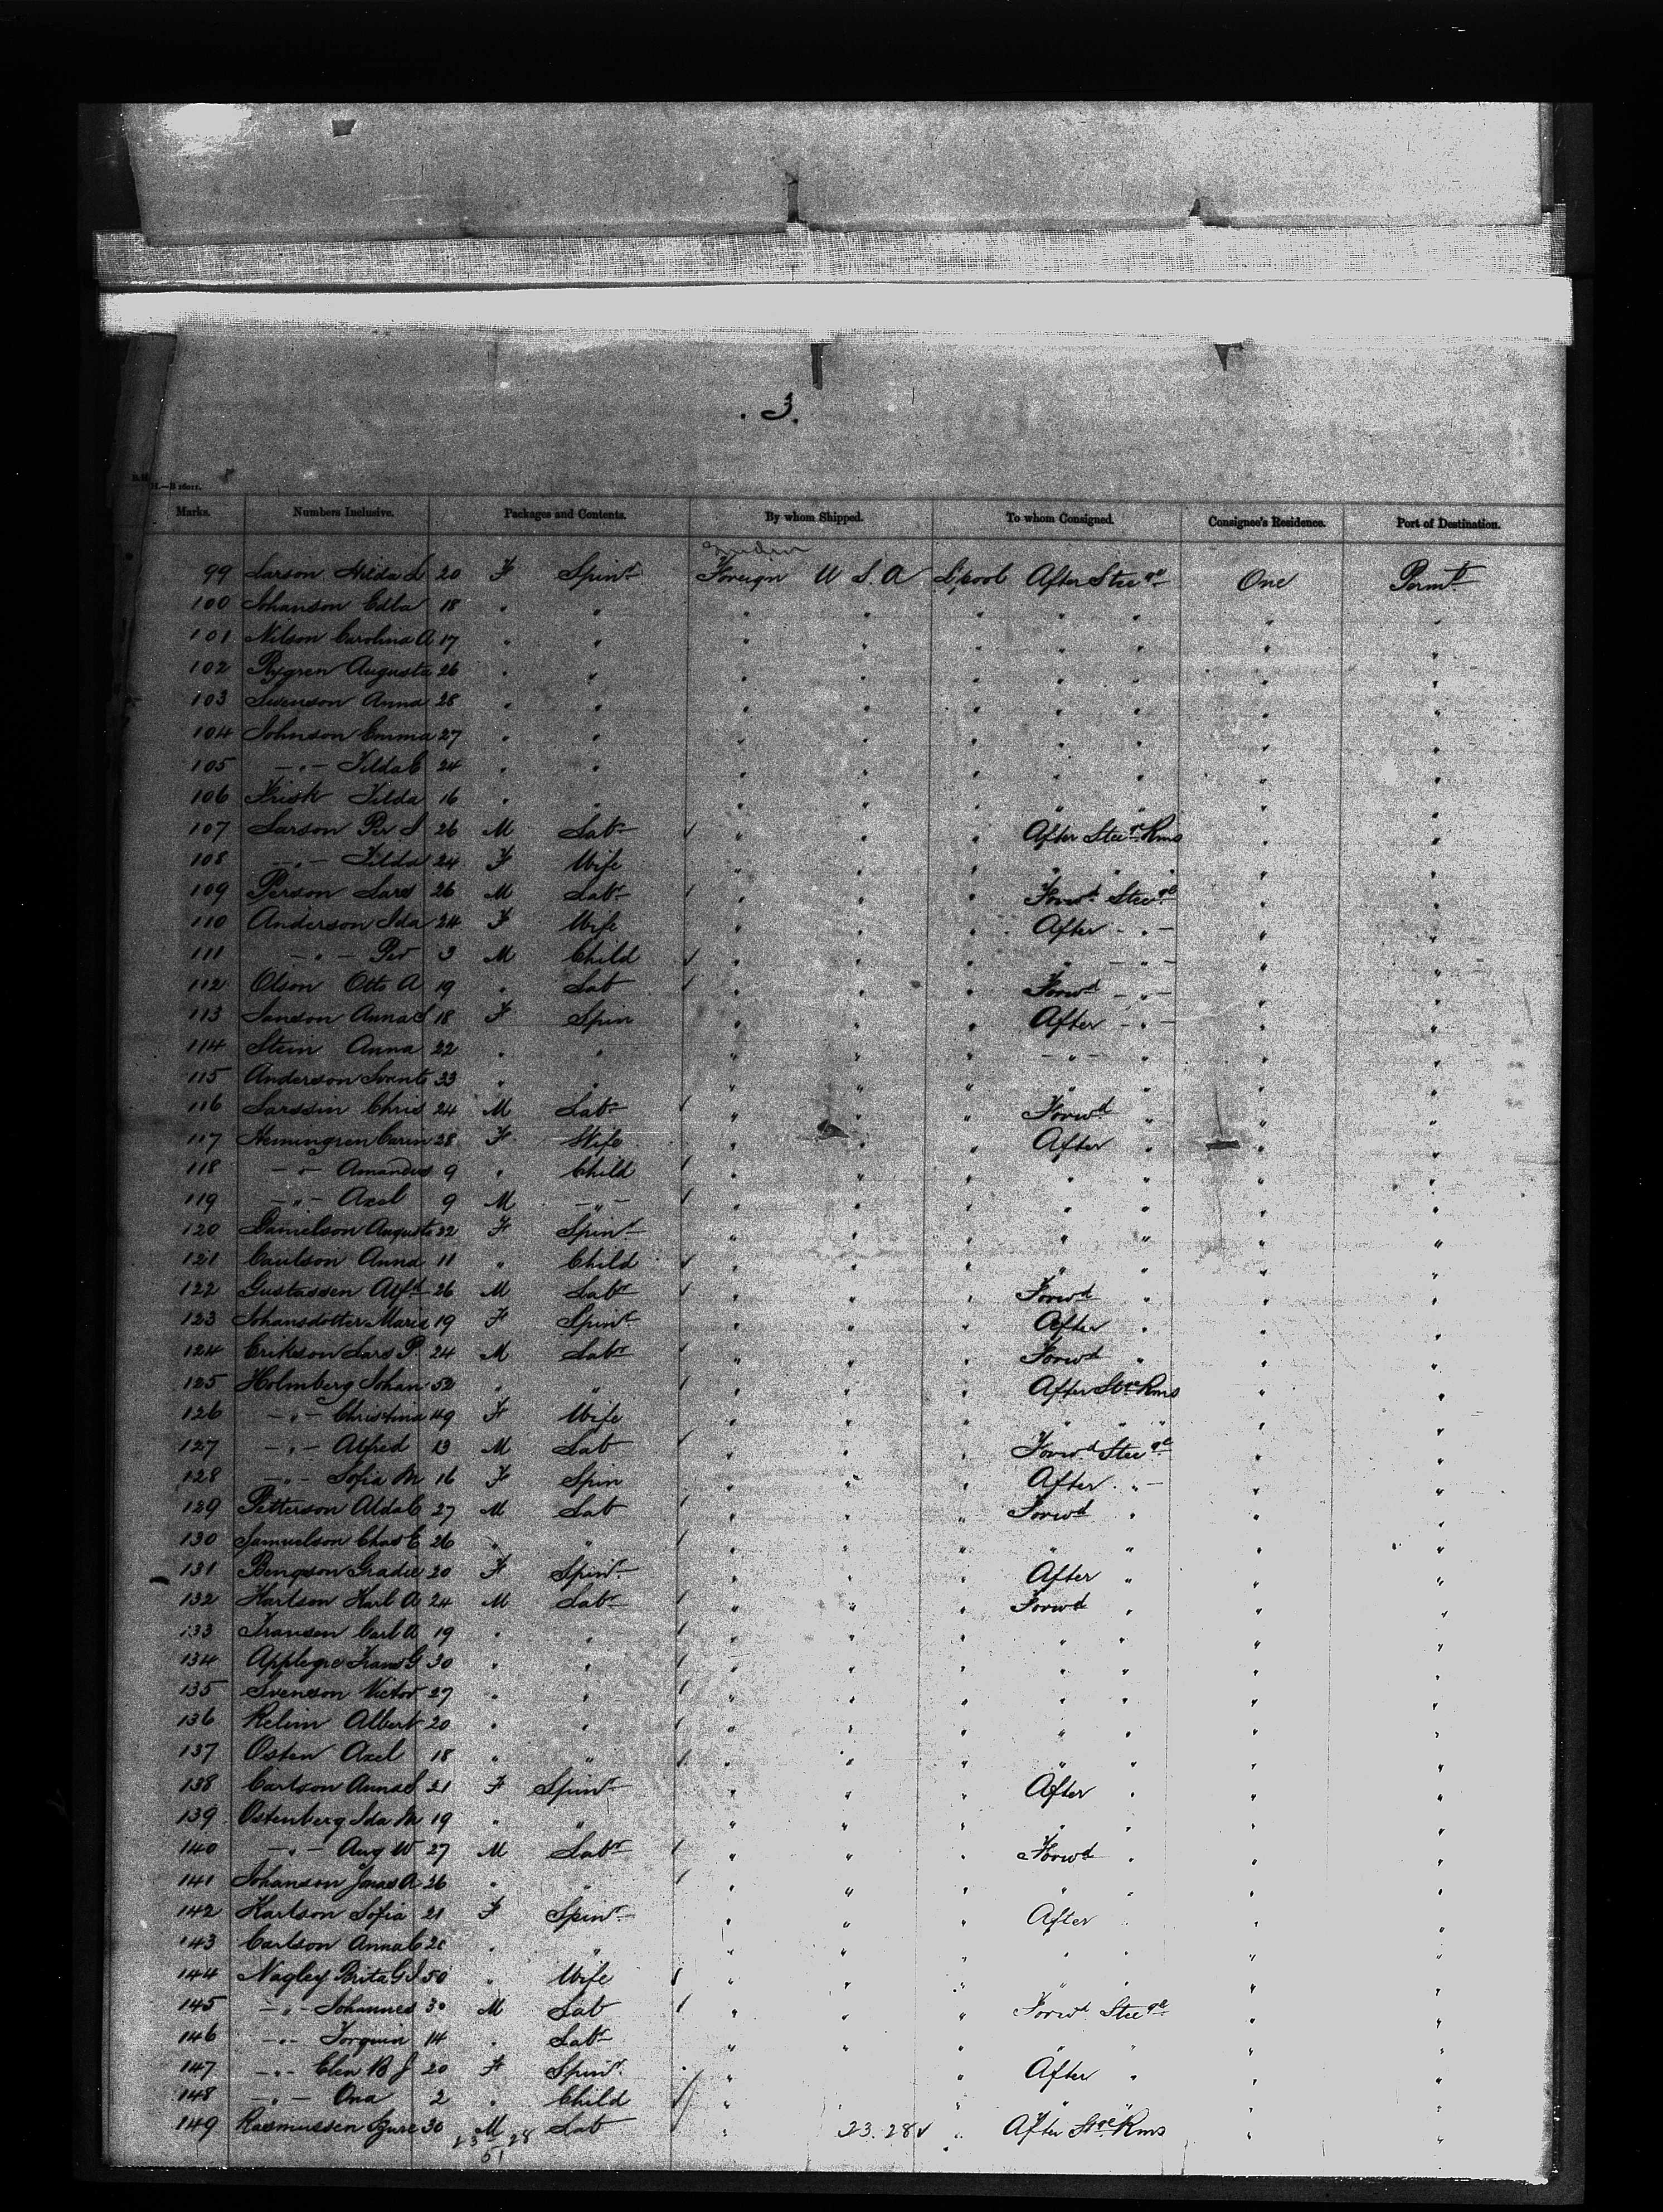 . 3.
H.—B 16011.
Marks. Numbers Inclusive. Packages and Contents. By whom Shipped. To whom Consigned. Consignee's Residence. Port of Destination.
99 Larson Hilda L 20 F Spinr Foreign U S. A L'pool After Steege One Permt
100 Johanson Edla 18 " " " " " " " " " "
101 Nilson Carolina A 17 " " " " " " " " "
102 Rygren Augusta 26 " " " " " " " " "
103 Swenson Anna 28 " " " " " " " " "
104 Johnson Emma 27 " " " " " " " " "
105 - " - Tilda C 24 " " " " " " " " "
106 Frisk Tilda 16 " " " " " " " " "
107 Larson Per S 26 M Labr " " " After Steer Rms " "
108 - " - Tilda 24 F Wife " " " " " " " "
109 Person Lars 26 M Labr " " " Forwd Steege " "
110 Anderson Ida 24 F Wife " " " After - " - " "
111 - " - Per 3 M Child " " " " - " - " "
112 Olson Otto A 19 " Lab " " " Forwd - " - " "
113 Anna S 18 F Spin " " " After - " - " "
114 Stein Anna 22 " " " " " - " - " "
115 Anderson 33 " " " " " " " " "
116 Larssin Chris 24 M Labr " " " Forwd " " "
117 Hemingren Carin 28 F Wife " " " After " " "
118 - " - Amandus 9 " Child " " " " " " "
119 - " - Axel 9 M - " - " " " " " " "
120 Danielson Augusta 32 F Spinr " " " " " " "
121 Caulson Anna 11 " Child " " " " " " "
122 Gustassen Alfd 26 M Labr " " " Forwd " " "
123 Johansdotter Maria 19 F Spinr " " " After " " "
124 Erikson Lars P 24 M Labr " " " Forwd " " "
125 Holmberg Johan 52 " " " " " After Stge Rms " "
126 - " - Christina 49 F Wife " " " " " " " "
127 - " - Alfred 13 M Lab " " " Forwd Steege " "
128 - " - Sofia M 16 F Spin " " " After " - " "
129 Petterson Alda C 27 M Lab " " " Forwd " " "
130 Samuelson Chas E 26 " " " " " " " " "
131 Bengson 20 F Spinr " " " After " " "
132 Karlson Karl A 24 M Labr " " " Forwd " " "
133 Fransen Carl A 19 " " " " " " " " "
134 Frans G 30 " " " " " " " " "
135 Svenson Victor 27 " " " " " " " " "
136 Relim Albert 20 " " " " " " " " "
137 Osten Axel 18 " " " " " " " " "
138 Carlson Anna S 21 F Spinr " " " After " " "
139 Ostenberg Ida M 19 " " " " " " " " "
140 - " - Aug W 27 M Labr " " " Forwd " " "
141 Johanson Jonas A 26 " " " " " " " " "
142 Karlson Sofia 21 F Spinr " " " After " " "
143 Carlson Anna C " " " " " " " " "
144 Nagley Brita G S 50 " Wife " " " " " " "
145 - " - Johannes 30 M Lab " " " Forwd Steege " "
146 - " - Torquin 14 " Labr " " " " " " "
147 - " - Elen B J 20 F Spinr " " After " " "
148 - " - Ona 2 " Child " " " " " "
149 Rasmussen 30 M Lab " 23. 28 " After Stge Rms " "
23 28
51